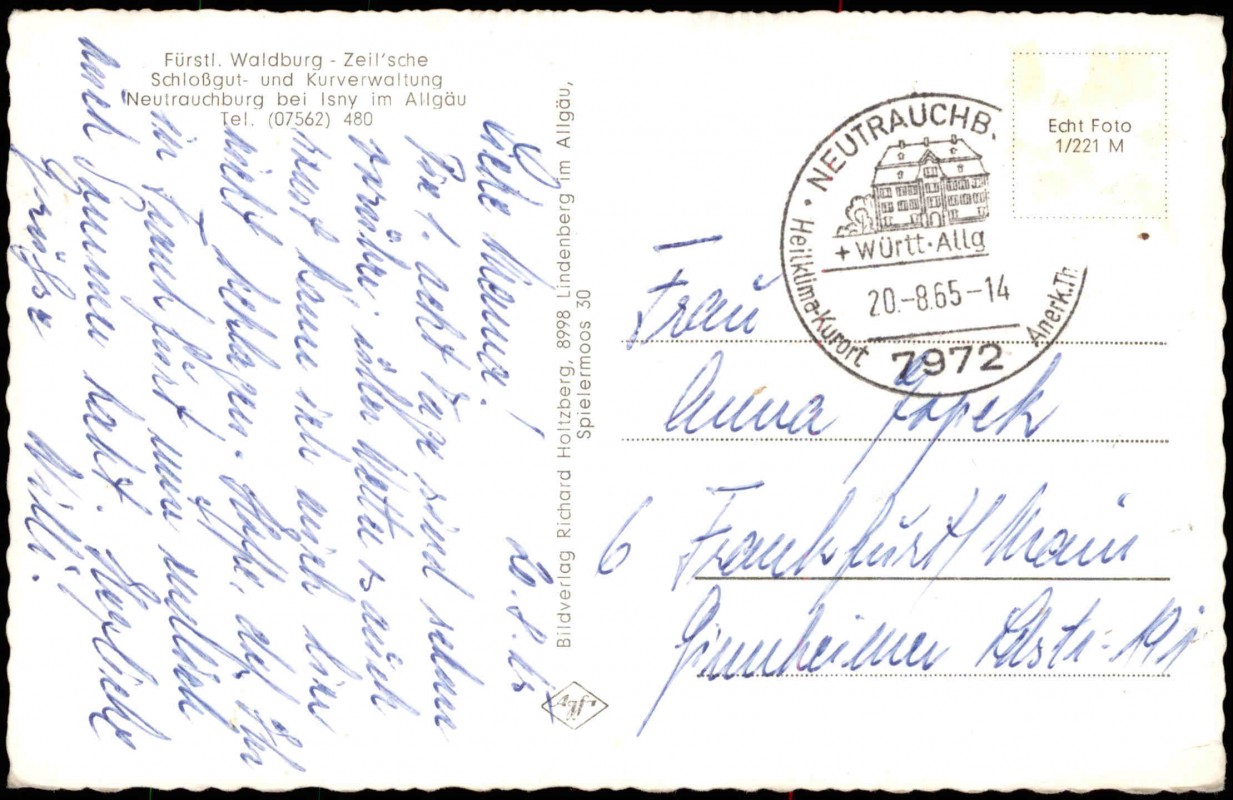 Fürstl. Waldburg - Zeil'sche
Schloßgut- und Kurverwaltung
Neutrauchburg bei Isny im Allgäu
Tel. (07562) 480
20.8.65
Liebe Mama!
Die 1. acht Tage sind schon
vorüber, übers Wetter auch
hier kann ich mich
nicht beklagen. Hoffe, daß Ihr
in Frankfurt nun endlich
auch Sonne habt. Herzliche
Grüße Willi.
Bildverlag Richard Holtzberg, 8998 Lindenberg im Allgäu,
Spielermoos 30
Agfa
NEUTRAUCHB.
+ Württ·Allg
20.-8.65-14
Heilklima-Kurort
7972
Anerk.Th
Echt Foto
1/221 M
Frau
Anna
6 Frankfurt/Main
Ginnheimer Ldstr. 191